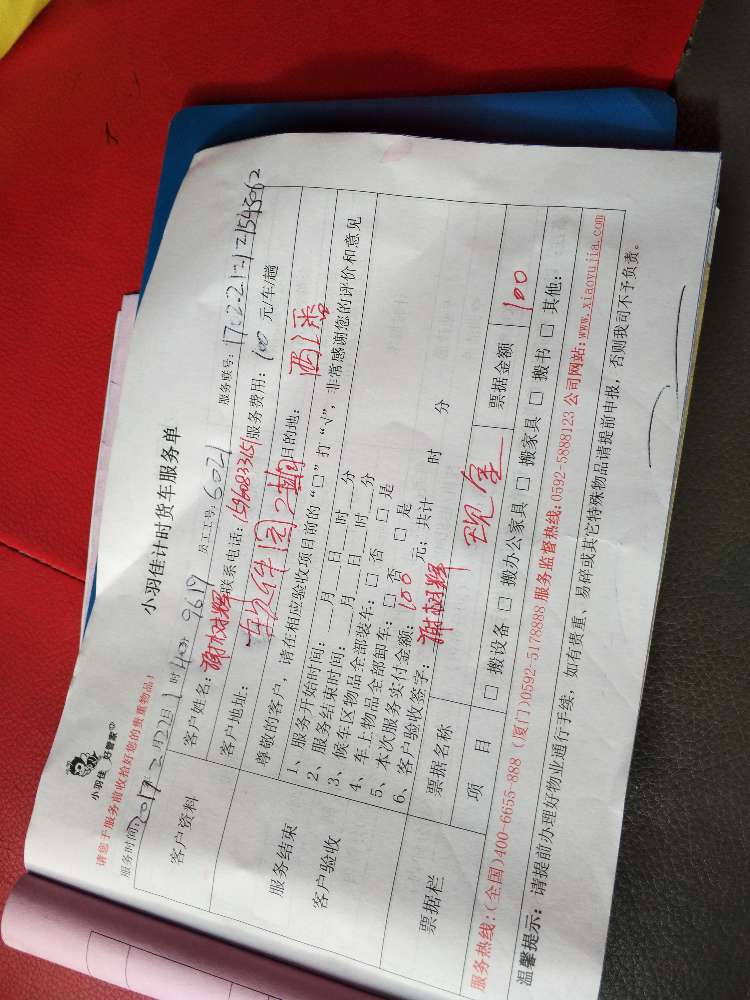 小羽佳 好管家
小羽佳计时货车服务单
请您于服务前收拾好您的贵重物品！
服务时间: 2017-2月21日1时40 9617 员工工号: 6021 服务账号: 1702-21-121545062
客户资料
客户姓名: 谢树辉 联系电话: 15960833151 服务费用: 100 元/车/趟
客户地址: 软件园2期 目的地:
服务结束
客户验收
尊敬的客户，请在相应验收项目前的“□”打“√”，非常感谢您的评价和意见
1、服务开始时间: 月 日 时 分
2、服务结束时间: 月 日 时 分
3、候车区物品全部装车: □ 否 □ 是
4、车上物品全部卸车: □ 否 □ 是
5、本次服务实付金额: 100 元; 共计 时 分
6、客户验收签字: 谢树辉
票据栏
票据名称 现金 票据金额 100
项 目 □ 搬设备 □ 搬办公家具 □ 搬家具 □ 搬书 □ 其他:
服务热线: (全国)400-6655-888 (厦门)0592-5178888 服务监督热线: 0592-5888123 公司网站: www.xiaoyujia.com
温馨提示: 请提前办理好物业通行手续，如有贵重、易碎或其它特殊物品请提前申报，否则我司不予负责。